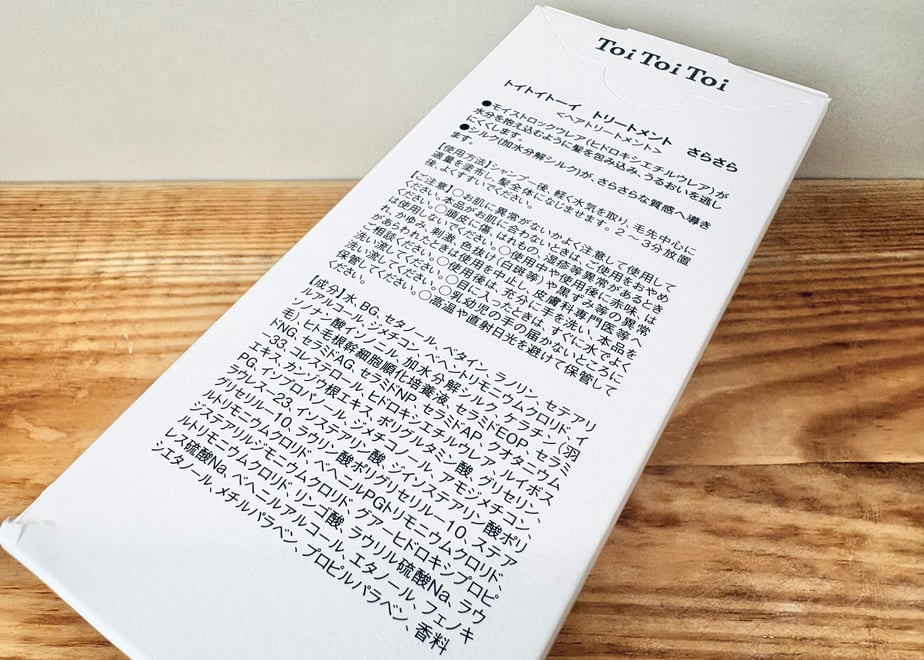 Toi Toi Toi
トイトイトーイ トリートメント さらさら
<ヘアトリートメント>
●モイストロックウレア(ヒドロキシエチルウレア)が
水分を抱え込むように髪を包み込み、うるおいを逃し
にくくします。
●シルク(加水分解シルク)が、さらさらな質感へ導き
ます。
【使用方法】シャンプー後、軽く水気を取り、毛先中心に
適量を塗布し、髪全体になじませます。2〜3分放置
後、よくすすいでください。
【ご注意】○お肌に異常がないかよく注意して使用して
ください。○本品がお肌に合わないときは、ご使用をおやめ
ください。○頭皮に傷、はれもの、湿疹等異常があるとき
は使用しないでください。○使用中や使用後に赤味、は
れ、かゆみ、刺激、色抜け(白斑等)や黒ずみ等の異常
があらわれたときは使用を中止し、皮膚科専門医等へ
相談ください。○使用後は、充分に手を洗い、本品を
洗い流してください。○目に入ったときは、すぐに水でよく
洗い流してください。○乳幼児の手の届かないところに
保管してください。○高温や直射日光を避けて保管して
ください。
【成分】水、BG、セタノール、ベタイン、ラノリン、セテアリ
ルアルコール、ジメチコン、ベヘントリモニウムクロリド、イ
ソノナン酸イソノニル、加水分解シルク、ケラチン(羽
毛)、ヒト毛根幹細胞順化培養液、セラミドEOP、セラミ
ドNG、セラミドAG、セラミドNP、セラミドAP、クオタニウム
-33、コレステロール、ヒドロキシエチルウレア、ルイボス
エキス、カンゾウ根エキス、ポリグルタミン酸、グリセリン、
PG、イソプロパノール、ジメチコノール、アモジメチコン、
ラウレス-23、イソステアリン酸、ジイソステアリン酸ポリ
グリセリル-10、ラウリン酸ポリグリセリル-10、ステア
ルトリモニウムクロリド、ベヘニルPGトリモニウムクロリド、
ジステアリルジモニウムクロリド、グアーヒドロキシプロピ
ルトリモニウムクロリド、リンゴ酸、ラウリル硫酸Na、ラウ
レス硫酸Na、ベヘニルアルコール、エタノール、フェノキ
シエタノール、メチルパラベン、プロピルパラベン、香料